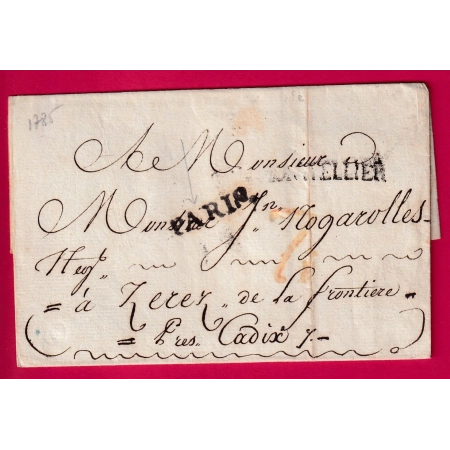 1785
A Monsieur
MONTPELLIER
PARIS
Monsieur Jn. Nogarolles
Negt
= à Xerez de la frontiere =
= Pres Cadix 7.-